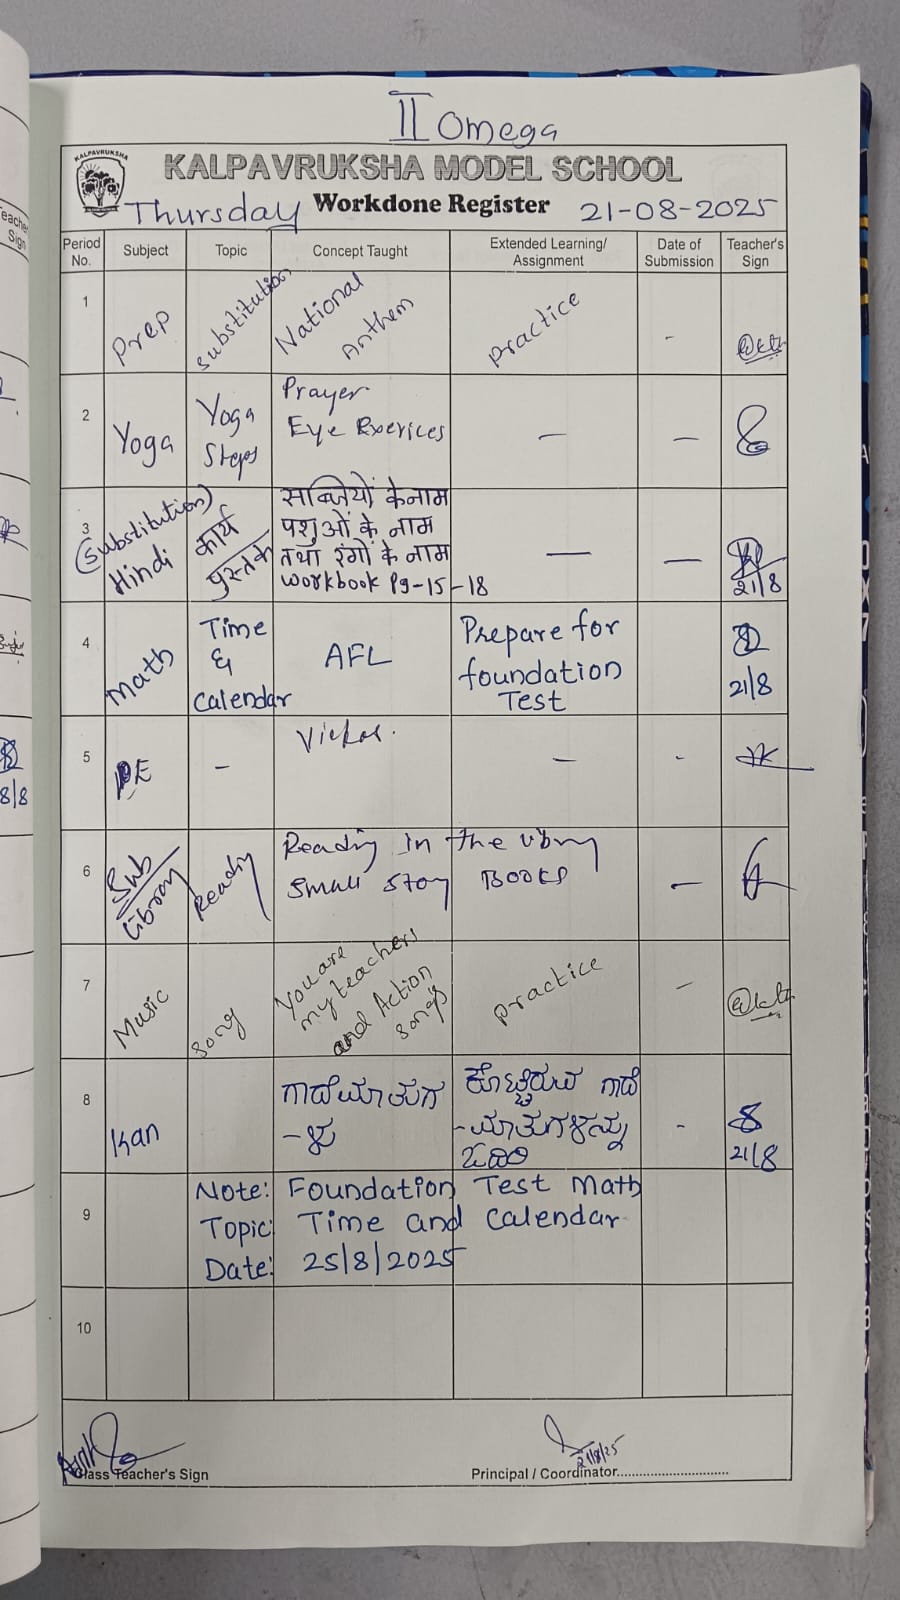 II Omega
KALPAVRUKSHA
KALPAVRUKSHA MODEL SCHOOL
Thursday Workdone Register 21-08-2025
Period No. Subject Topic Concept Taught Extended Learning/ Assignment Date of Submission Teacher's Sign
1 Prep Substitution National Anthem practice -
2 Yoga Yoga Steps Prayer Eye Exerices — —
3 (Substitution) Hindi कार्य पुस्तक सब्जियों के नाम
पशुओं के नाम
तथा रंगों के नाम — —
workbook Pg-15-18 21/8
4 Math Time & Calendar AFL Prepare for foundation Test 21/8
5 PE - - -
6 Sub Library Reading in the
small story Books —
7 Music Song You are my teachers and Action songs practice -
8 Kan ಗಾದೆಮಾತುಗ ಕೊಟ್ಟಿರುವ ಗಾದೆ
-ಳು -ಮಾತುಗಳನ್ನು -
ಓದಿರಿ 21/8
9 Note: Foundation Test Math
Topic: Time and Calendar
Date: 25/8/2025
10
21/8/25
Class Teacher's Sign Principal / Coordinator..............................
8/8